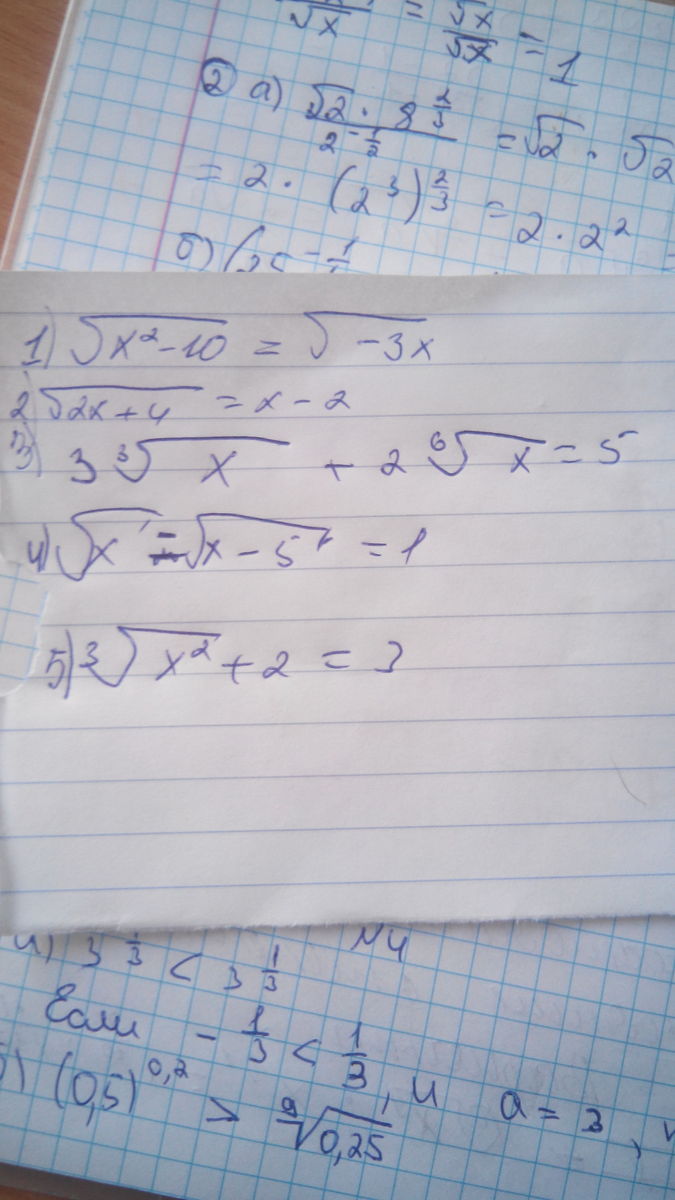 √x = √x/√x = 1
② а) √2 · 8^(2/3) / 2^(-1/2) = √2 · √2
= 2 · (2³)^(2/3) = 2 · 2²
б)
1) √(x²-10) = √(-3x)
2) √(2x+4) = x - 2
3) 3 ∛x + 2 ⁶√x = 5
4) √x - √(x-5) = 1
5) ∛(x²) + 2 = 3
3^(-1/3) < 3^(1/3) N4
Если -1/3 < 1/3, и a = 3,
(0,5)^(0,2) > ⁹√(0,25)